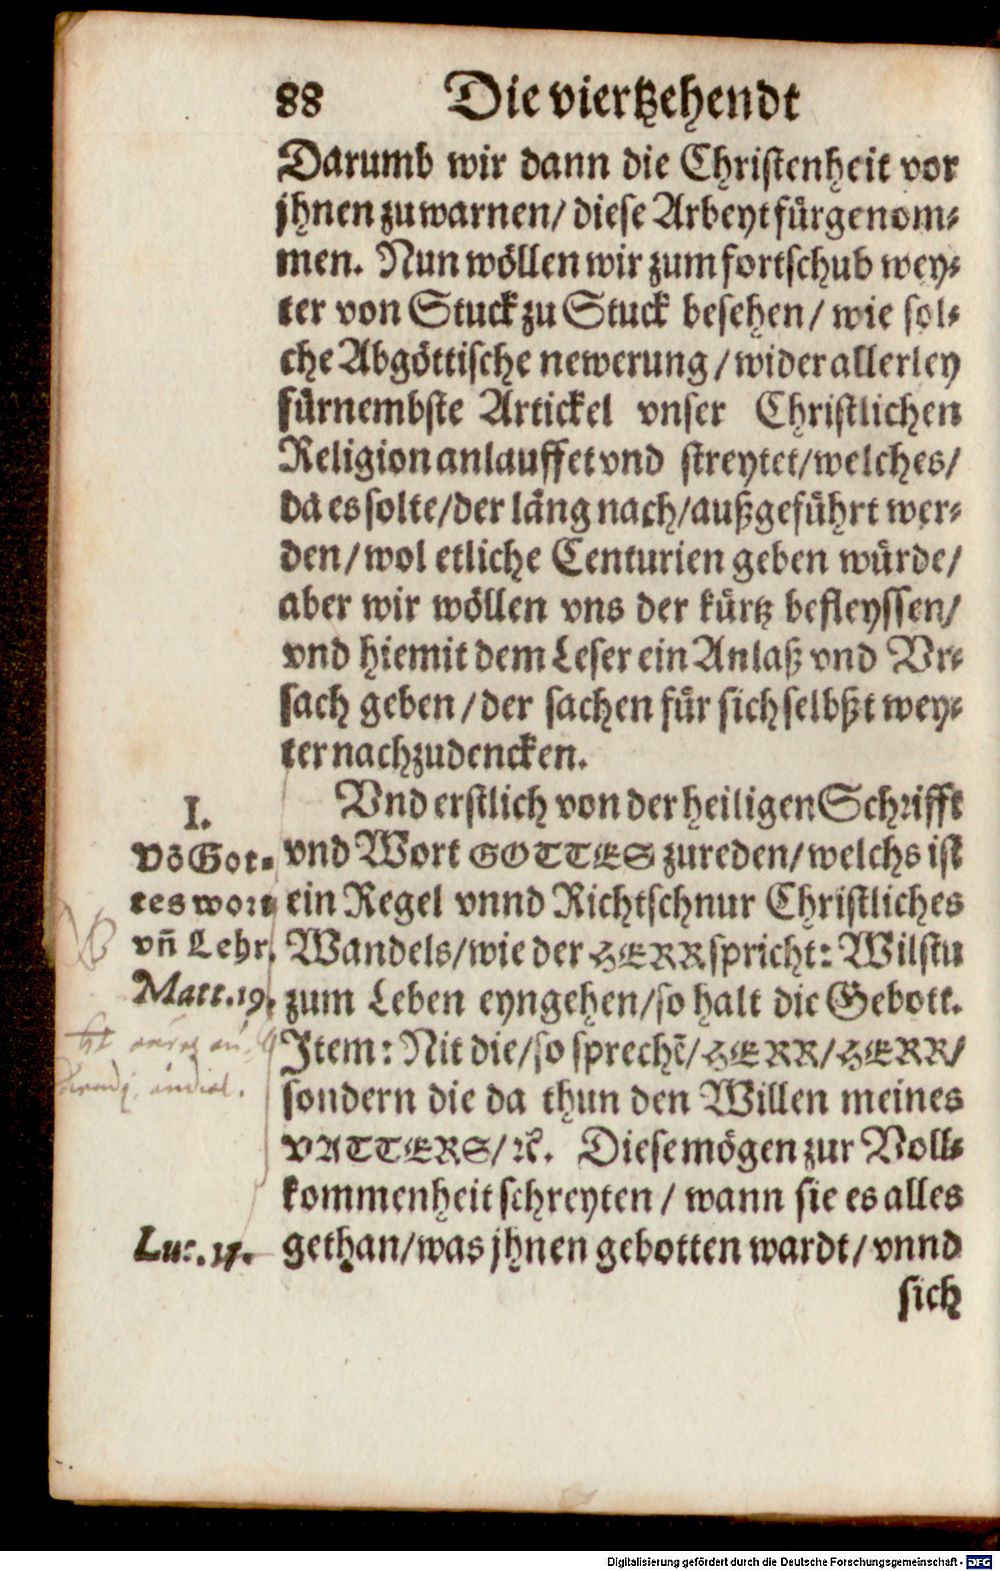 88 Die viertzehendt
Darumb wir dann die Christenheit vor
jhnen zu warnen/ diese Arbeyt fürgenom⸗
men. Nun wöllen wir zum fortschub wey⸗
ter von Stuck zu Stuck besehen/ wie sol⸗
che Abgöttische newerung/ wider allerley
fürnembste Artickel vnser Christlichen
Religion anlauffet vnd streytet/welches/
da es solte/der läng nach/außgeführt wer⸗
den/wol etliche Centurien geben würde/
aber wir wöllen vns der kürtz befleyssen/
vnd hiemit dem Leser ein Anlaß vnd Vr⸗
sach geben/der sachen für sich selbßt wey⸗
ter nachzudencken.
I.
Võ Got⸗
tes wort
vñ Lehr.
Matt.19.
Luc. 17.
Vnd erstlich von der heiligen Schrifft
vnd Wort GOTTES zureden/welchs ist
ein Regel vnnd Richtschnur Christliches
Wandels/wie der HERR spricht: Wilstu
zum Leben eyngehen/so halt die Gebott.
Item: Nit die/so sprechẽ/HERR/HERR/
sondern die da thun den Willen meines
VATTERS/ꝛc. Diese mögen zur Voll⸗
kommenheit schreyten/ wann sie es alles
gethan/was jhnen gebotten wardt/vnnd
sich
Digitalisierung gefördert durch die Deutsche Forschungsgemeinschaft - DFG